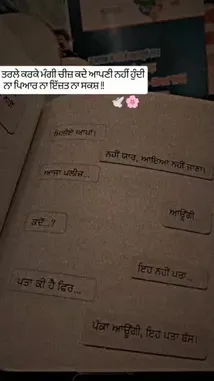 ਤਰਲੇ ਕਰਕੇ ਮੰਗੀ ਚੀਜ਼ ਕਦੇ ਆਪਣੀ ਨਹੀਂ ਹੁੰਦੀ
ਨਾ ਪਿਆਰ ਨਾ ਇੱਜ਼ਤ ਨਾ ਸਕਸ਼ !!
🕊️🌸
ਮਿਲੀਏ ਆਪਾਂ।
ਨਹੀਂ ਯਾਰ, ਆਇਆ ਨਹੀਂ ਜਾਣਾ।
ਆਜਾ ਪਲੀਜ਼...
ਆਊਂਗੀ.
ਕਦੋਂ...?
ਇਹ ਨਹੀਂ ਪਤਾ...
ਪਤਾ ਕੀ ਹੈ ਫਿਰ...
ਪੱਕਾ ਆਊਂਗੀ, ਇਹ ਪਤਾ ਬੱਸ।